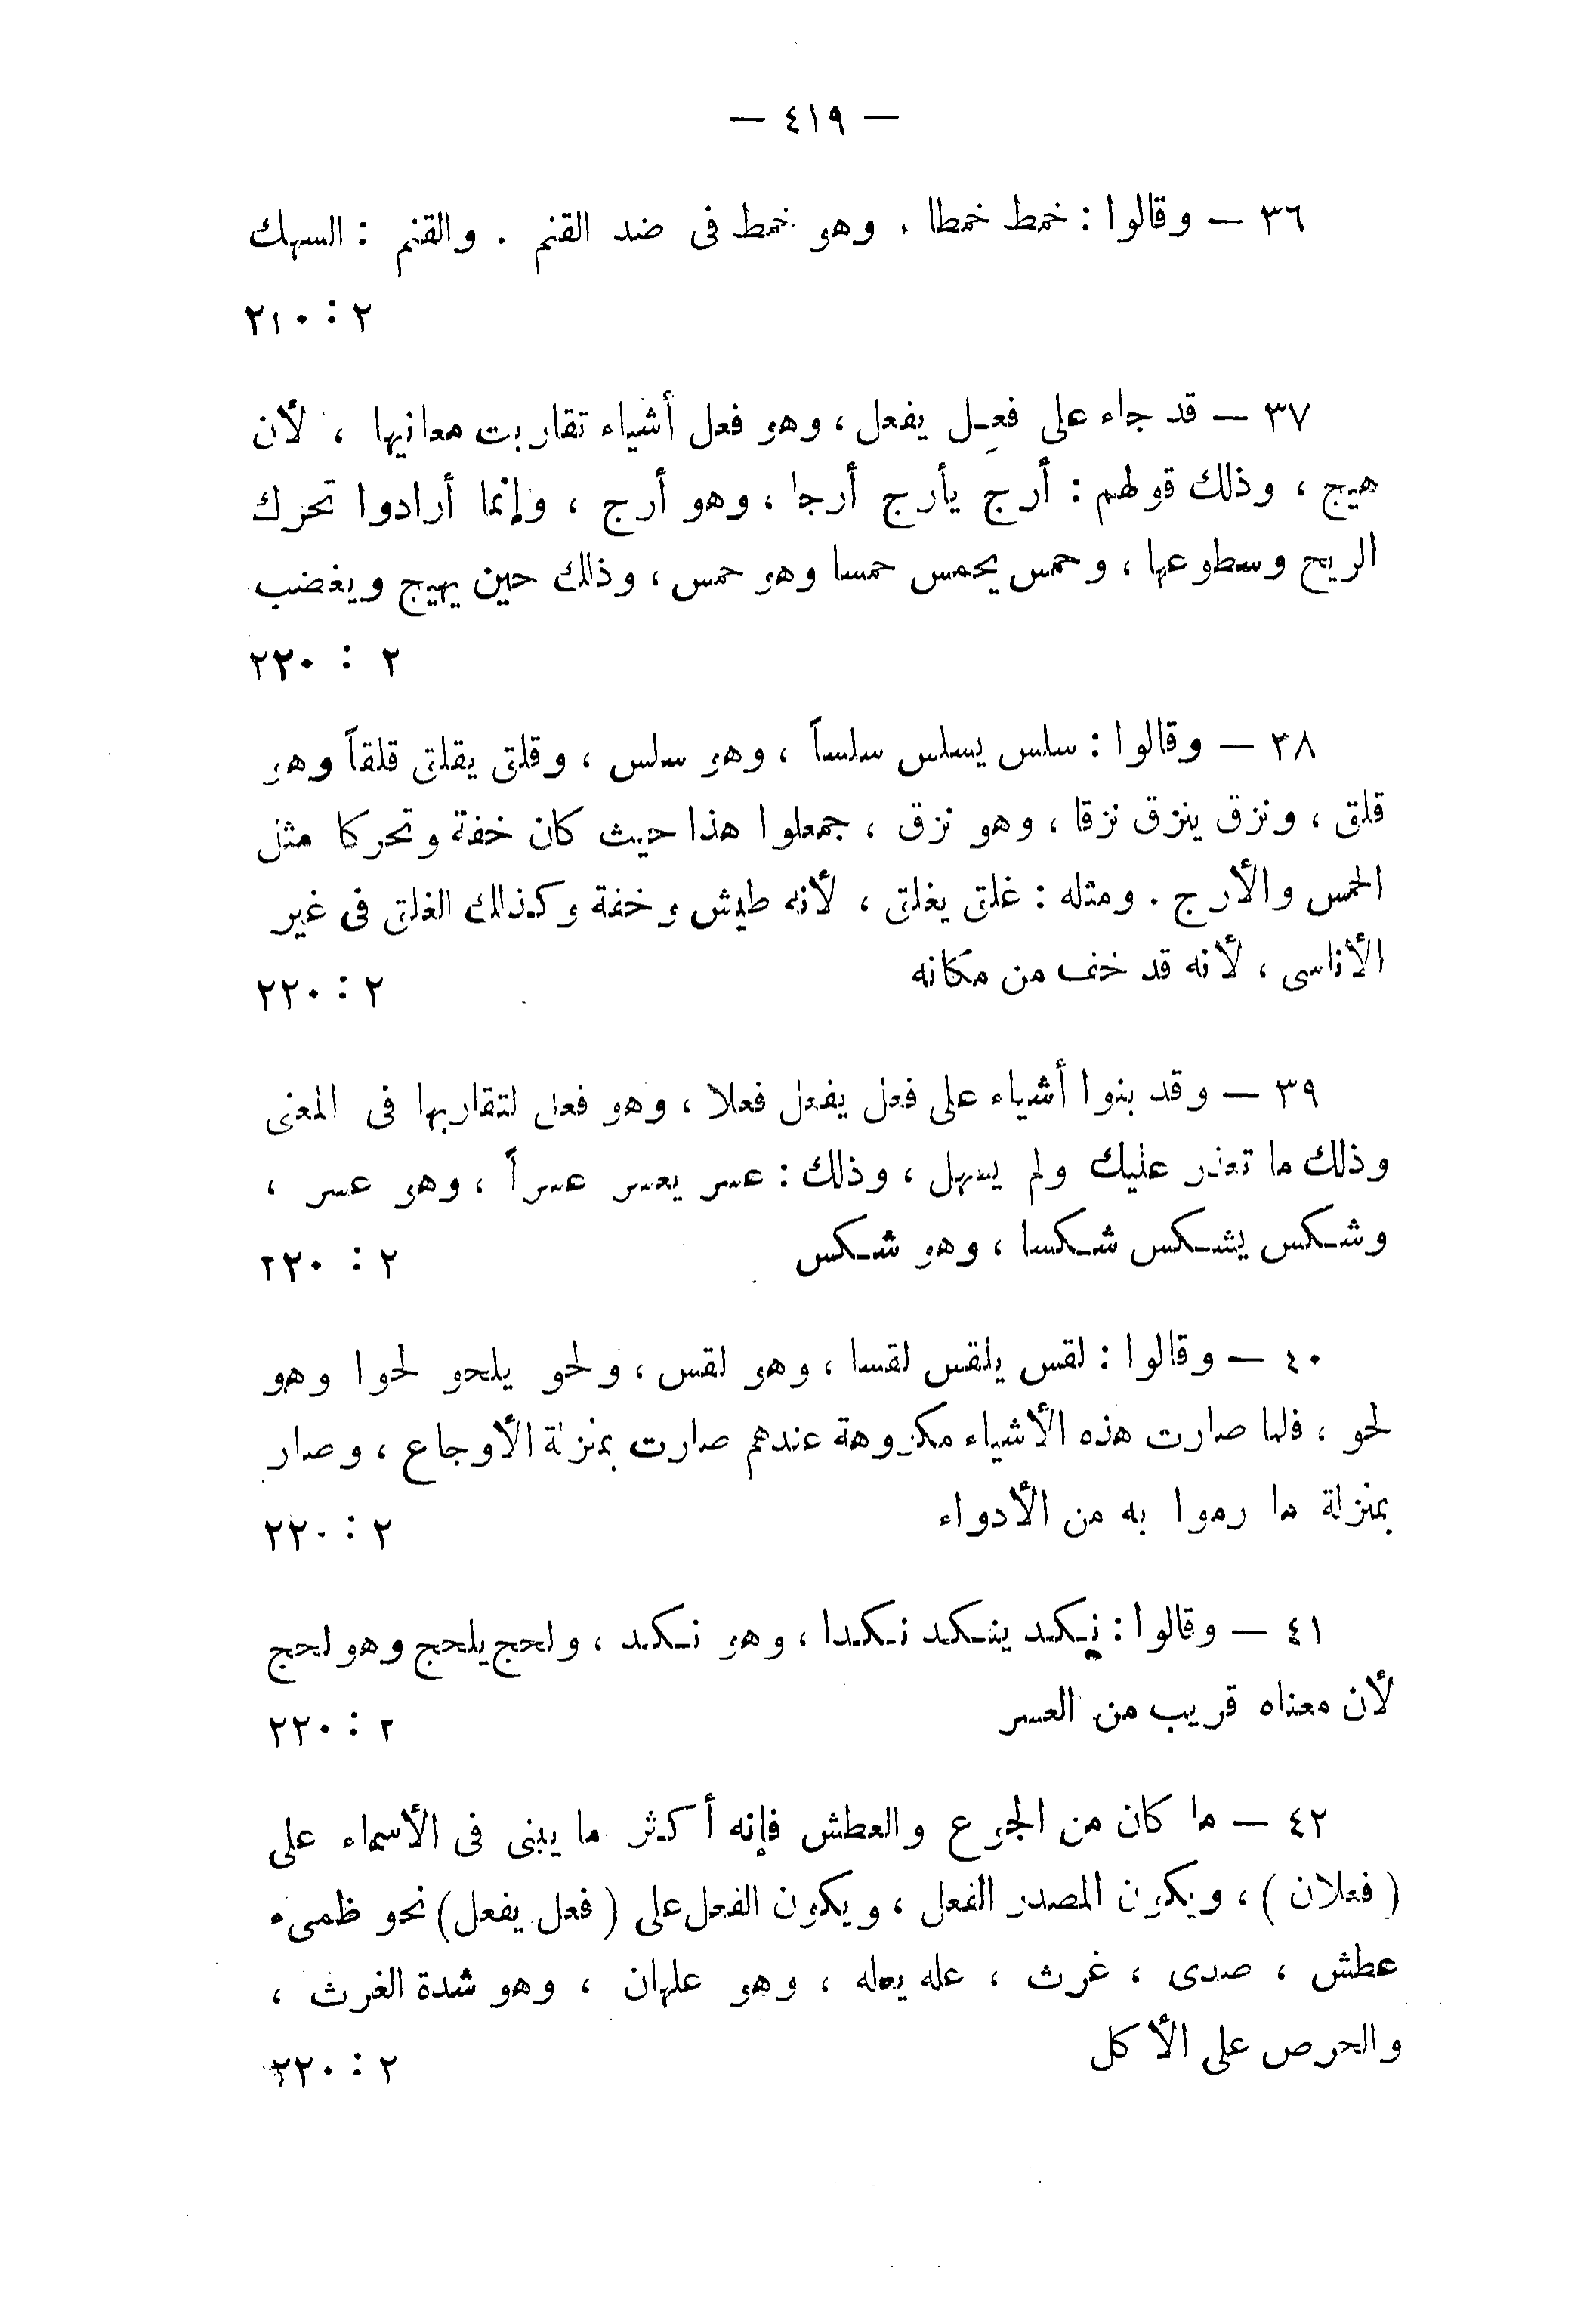 — ٤١٩ —
٣٦ — وقالوا : خمط خمطا ، وهو خمط فى ضد القنم . والقنم : السهك
٢ : ٢١٠
٣٧ — قد جاء على فعِـل يفعل ، وهو فعل أشياء تقاربت معانيها ، لأن
هيج ، وذلك قولهم : أرج يأرج أرجا ، وهو أرج ، وإنما أرادوا تحرك
الريح وسطوعها ، وحمس يحمس حمسا وهو حمس ، وذلك حين يهيج ويغضب
٢ : ٢٢٠
٣٨ — وقالوا : سلس يسلس سلساً ، وهو سلس ، وقلق يقلق قلقاً وهو
قلق ، ونزق ينزق نزقا ، وهو نزق ، جمعلوا هذا حيث كان خفة وتحركا مثل
الحمس والأرج . ومثله : غلق يغلق ، لأنه طيش وخفة وكذلك الغلق فى غير
الأناسى ، لأنه قد خف من مكانه ٢ : ٢٢٠
٣٩ — وقد بنوا أشياء على فعل يفعل فعلا ، وهو فعل لتقاربها فى المعنى
وذلك ما تعذر عليك ولم يسهل ، وذلك : عسر يعسر عسراً ، وهو عسر ،
وشـكس يشـكس شـكسا ، وهو شـكس ٢ : ٢٢٠
٤٠ — وقالوا : لقس يلقس لقسا ، وهو لقس ، ولحو يلحو لحوا وهو
لحو ، فلما صارت هذه الأشياء مكروهة عندهم صارت بمنزلة الأوجاع ، وصار
بمنزلة ما رموا به من الأدواء ٢ : ٢٢٠
٤١ — وقالوا : نـكد ينـكد نـكدا ، وهو نـكد ، ولحج يلحج وهو لحج
لأن معناه قريب من العسر ٢ : ٢٢٠
٤٢ — ما كان من الجوع والعطش فإنه أكثر ما يبنى فى الأسماء على
( فعلان ) ، ويكون المصدر الفعل ، ويكون الفعل على ( فعل يفعل ) نحو ظمىء
عطش ، صدى ، غرث ، عله يعله ، وهو علهان ، وهو شدة الغرث ،
والحرص على الأكل ٢ : ٢٢٠